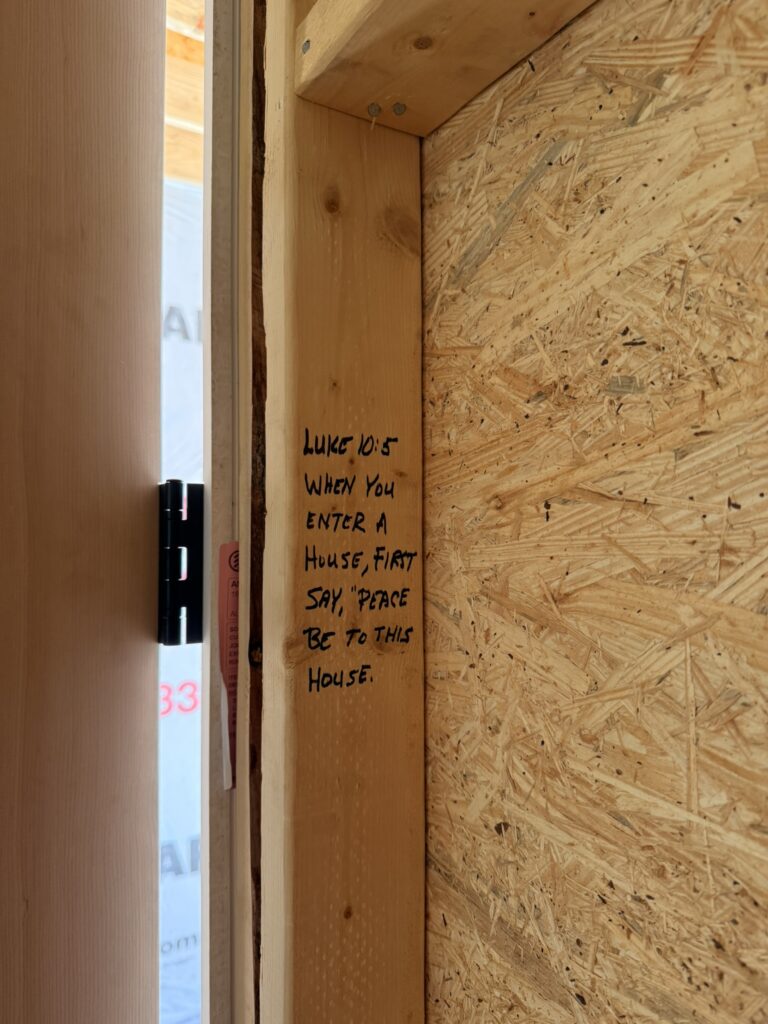 LUKE 10:5
WHEN YOU
ENTER A
HOUSE, FIRST
SAY, "PEACE
BE TO THIS
HOUSE.
33